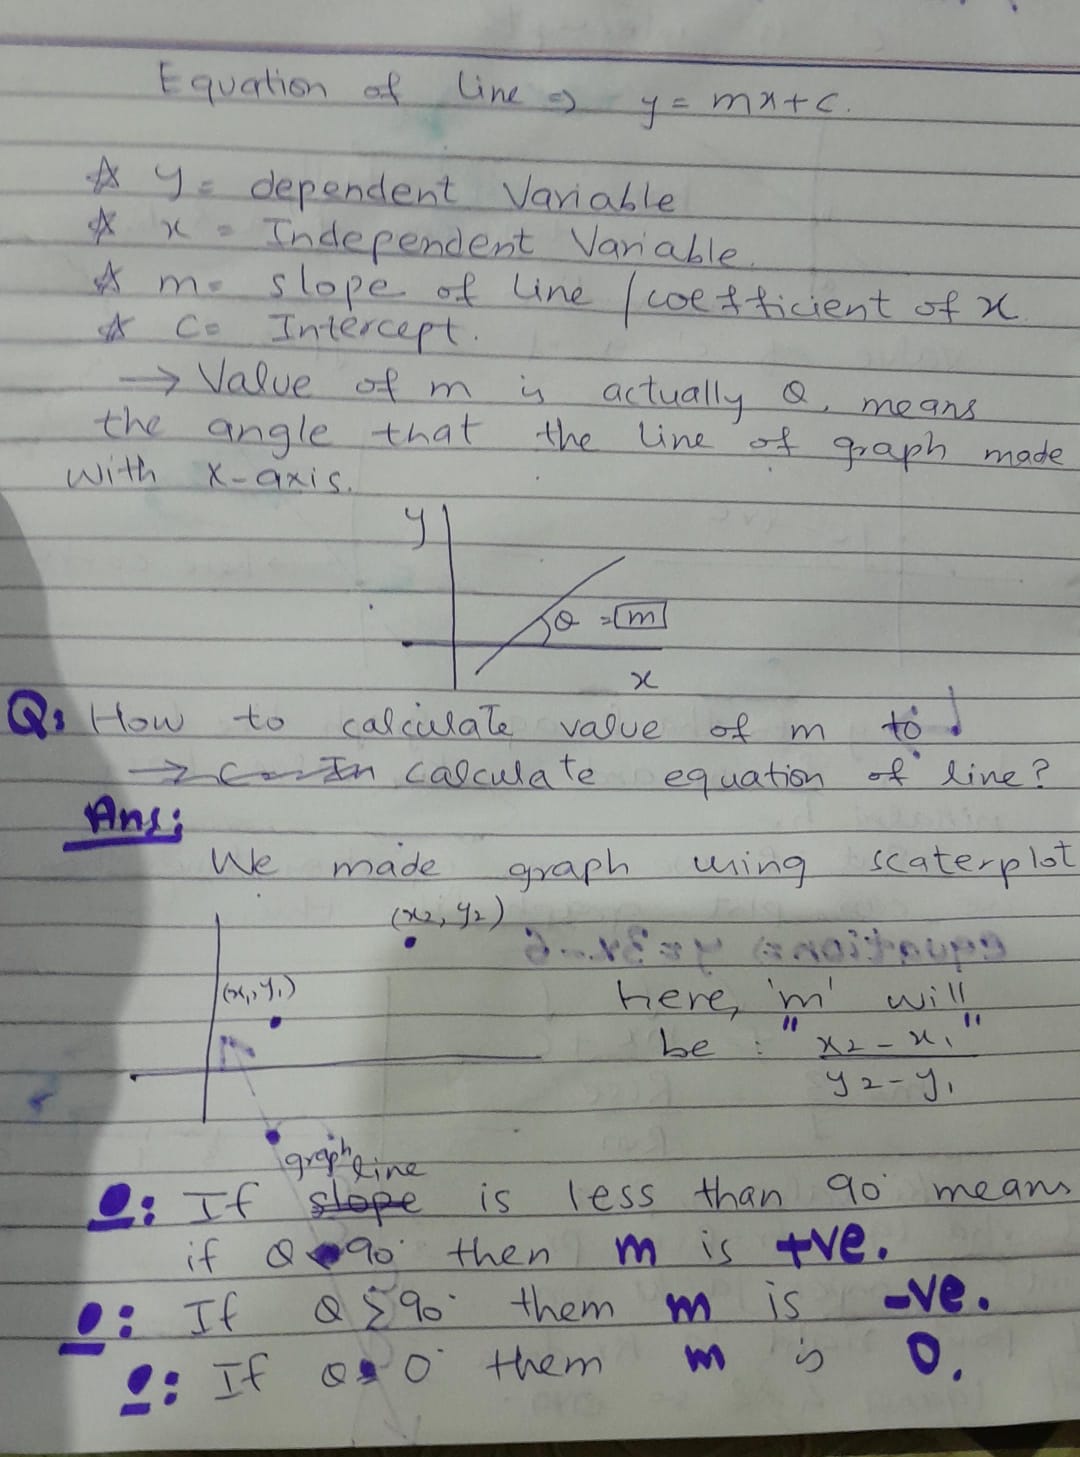 Equation of line ⇒ y = mx+c.
☆ y = dependent Variable
☆ x = Independent Variable.
☆ m = slope of line / coefficient of x
☆ C = Intercept.
→ Value of m is actually θ, means
the angle that the line of graph made
with x-axis.
y
θ = m
x
Q: How to calculate value of m to
→ calculate equation of line?
Ans:
We made graph using scaterplot
(x2, y2)
equation⇒ y=3x-6
(x1, y1)
here, 'm' will
be : "x2 - x1"
y2 - y1
graph line
: If slope is less than 90° means
if θ 90° then m is +ve.
: If θ 90° them m is -ve.
: If θ = 0° them m is 0.